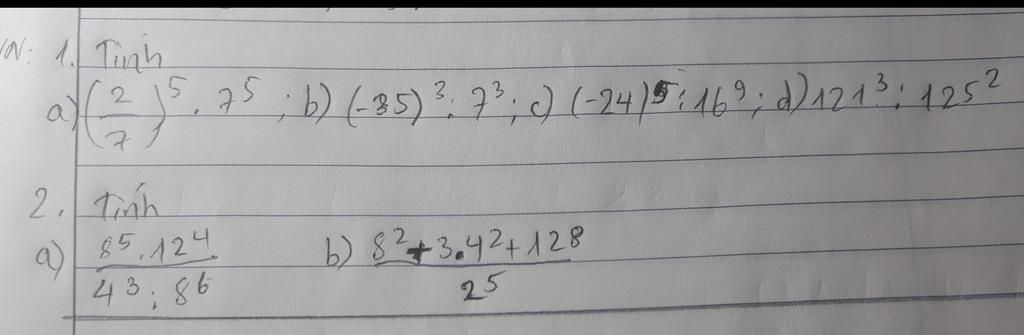 VN: 1. Tính
a) (2/7)^5 . 7^5 ; b) (-35)^3 : 7^3 ; c) (-24)^5 : 16^9 ; d) 121^3 : 125^2
2. Tính
a) 8^5 . 12^4 / 4^3 : 8^6 b) 8^2 + 3.4^2 + 128 / 2^5